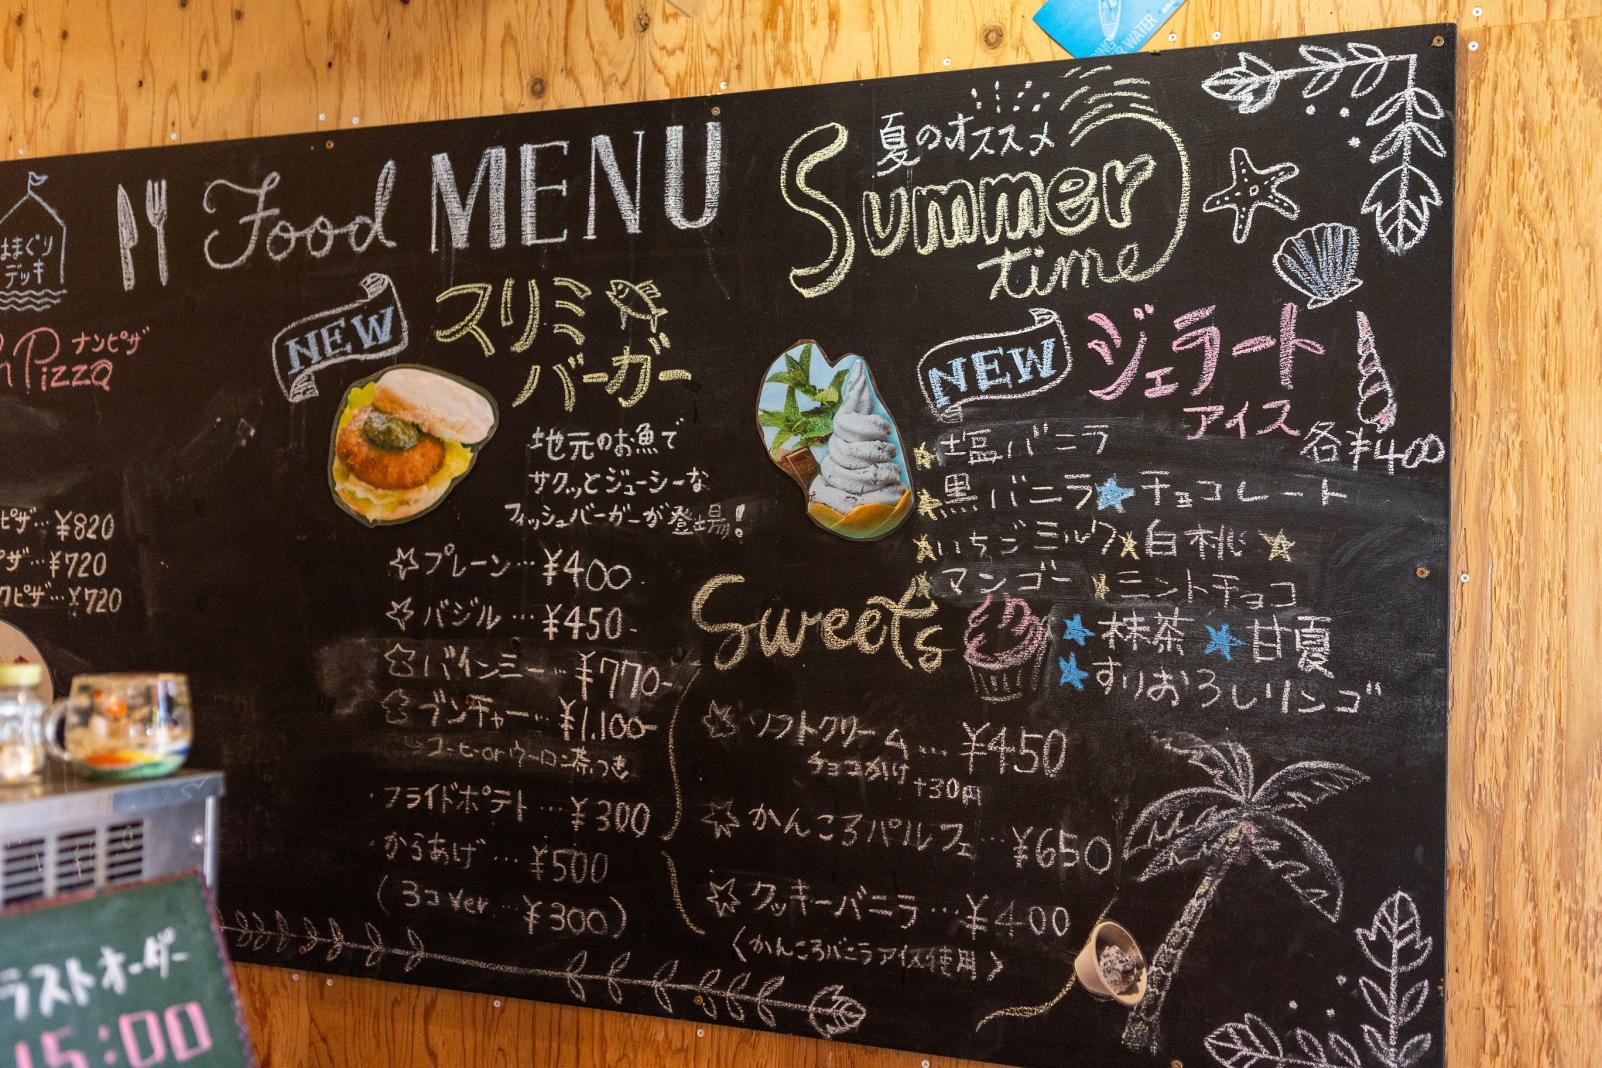 はまぐり
デッキ
Pizza ナンピザ
ピザ…¥820
ピザ…¥720
クピザ…¥720
Food MENU
NEW スリミ
バーガー
地元のお魚で
サクッとジューシーな
フィッシュバーガーが登場!
☆プレーン…¥400
☆バジル…¥450-
☆バインミー…¥770-
☆ブンチャー…¥1,100-
コーヒーorウーロン茶つき
・フライドポテト…¥300
・からあげ…¥500
(3コver…¥300)
夏のオススメ
Summer
time
NEW ジェラート
アイス 各¥400
★塩バニラ
★黒バニラ★チョコレート
★いちごミルク★白桃★
★マンゴー★ミントチョコ
★抹茶★甘夏
★すりおろしリンゴ
Sweets
☆ソフトクリーム…¥450
チョコがけ+30円
☆かんころパルフェ…¥650
☆クッキーバニラ…¥400
〈かんころバニラアイス使用〉
ラストオーダー
15:00
WATER